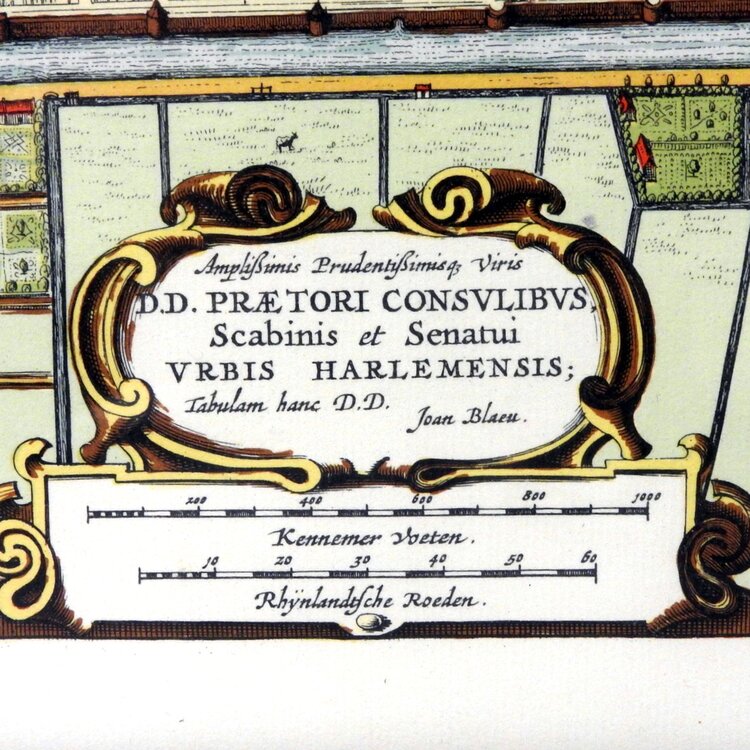 Ampliſsimis Prudentiſsimisq₃ Viris
D.D. PRÆTORI CONSVLIBVS,
Scabinis et Senatui
VRBIS HARLEMENSIS;
Tabulam hanc D.D.
Joan Blaeu.
200 400 600 800 1000
Kennemer Voeten.
10 20 30 40 50 60
Rhÿnlandtſche Roeden.